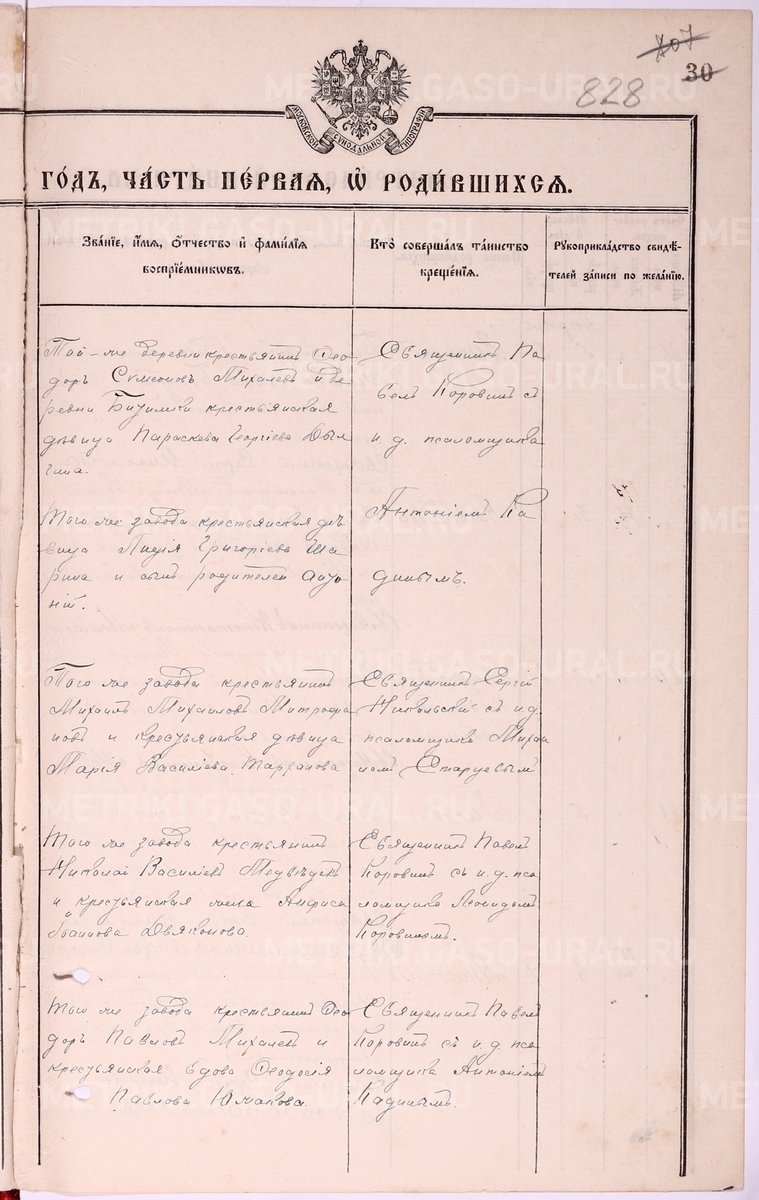 207
30
828
МОСКОВСКОЙ СѴНОДАЛЬНОЙ ТИПОГРАФІИ
ГО́ДЪ, ЧА́СТЬ ПЕ́РВАЯ, Ѡ҆ РОДИ́ВШИХСЯ.
Зва́нїе, и҆́мя, ѻ҆́тчество и҆ фами́лїя
воспрїе́мниковъ.
Кто̀ соверша́лъ та́инство
креще́нїя.
Рꙋкоприкла́дство свидѣ́-
телей за́писи по жела́нїю.
Той-же деревни крестьянинъ Ѳео
доръ Сѵмеоновъ Михалевъ и де
ревни крестьянская
дѣвица Параскева Георгіева
Священникъ Па
велъ Коровинъ съ
и. д. псаломщика
Антоніемъ Ка
динымъ.
Того же завода крестьянская дѣ
вица Лидія Григоріева Ша
рина и сынъ родителей
Того же завода крестьянинъ
Михаилъ Михаиловъ Митрофа
новъ и крестьянская дѣвица
Марія Василіева
Священникъ Сергій
Никольскій съ и. д.
псаломщика Михаи
ломъ Старцевымъ
Того же завода крестьянинъ
Николай Василіевъ Медвѣдевъ
и крестьянская жена Анфиса
Іоаннова Дьяконова.
Священникъ Павелъ
Коровинъ съ и. д. пса
ломщика Леонидомъ
Коровинымъ.
Того же завода крестьянинъ Ѳео
доръ Павловъ Михалевъ и
крестьянская вдова Ѳеодосія
Павлова Юмакова.
Священникъ Павелъ
Коровинъ съ и. д. пса
ломщика Антоніемъ
Кадинымъ.
METRIKI.GASO-URAL.RU